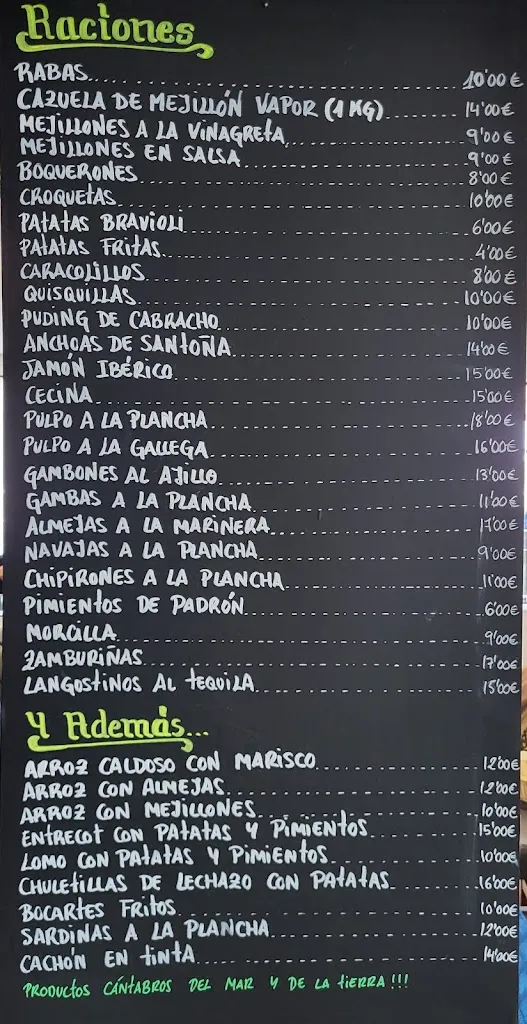 Raciones
RABAS 10'00 €
CAZUELA DE MEJILLÓN VAPOR (1 KG) 14'00 €
MEJILLONES A LA VINAGRETA 9'00 €
MEJILLONES EN SALSA 9'00 €
BOQUERONES 8'00 €
CROQUETAS 10'00 €
PATATAS BRAVIOLI 6'00 €
PATATAS FRITAS 4'00 €
CARACOLILLOS 8'00 €
QUISQUILLAS 10'00 €
PUDING DE CABRACHO 10'00 €
ANCHOAS DE SANTOÑA 14'00 €
JAMÓN IBÉRICO 15'00 €
CECINA 15'00 €
PULPO A LA PLANCHA 18'00 €
PULPO A LA GALLEGA 16'00 €
GAMBONES AL AJILLO 13'00 €
GAMBAS A LA PLANCHA 11'00 €
ALMEJAS A LA MARINERA 17'00 €
NAVAJAS A LA PLANCHA 9'00 €
CHIPIRONES A LA PLANCHA 11'00 €
PIMIENTOS DE PADRÓN 6'00 €
MORCILLA 9'00 €
ZAMBURIÑAS 17'00 €
LANGOSTINOS AL TEQUILA 15'00 €
Y Además...
ARROZ CALDOSO CON MARISCO 12'00 €
ARROZ CON ALMEJAS 12'00 €
ARROZ CON MEJILLONES 10'00 €
ENTRECOT CON PATATAS Y PIMIENTOS 15'00 €
LOMO CON PATATAS Y PIMIENTOS 10'00 €
CHULETILLAS DE LECHAZO CON PATATAS 16'00 €
BOCARTES FRITOS 10'00 €
SARDINAS A LA PLANCHA 12'00 €
CACHÓN EN TINTA 14'00 €
PRODUCTOS CÁNTABROS DEL MAR Y DE LA TIERRA!!!